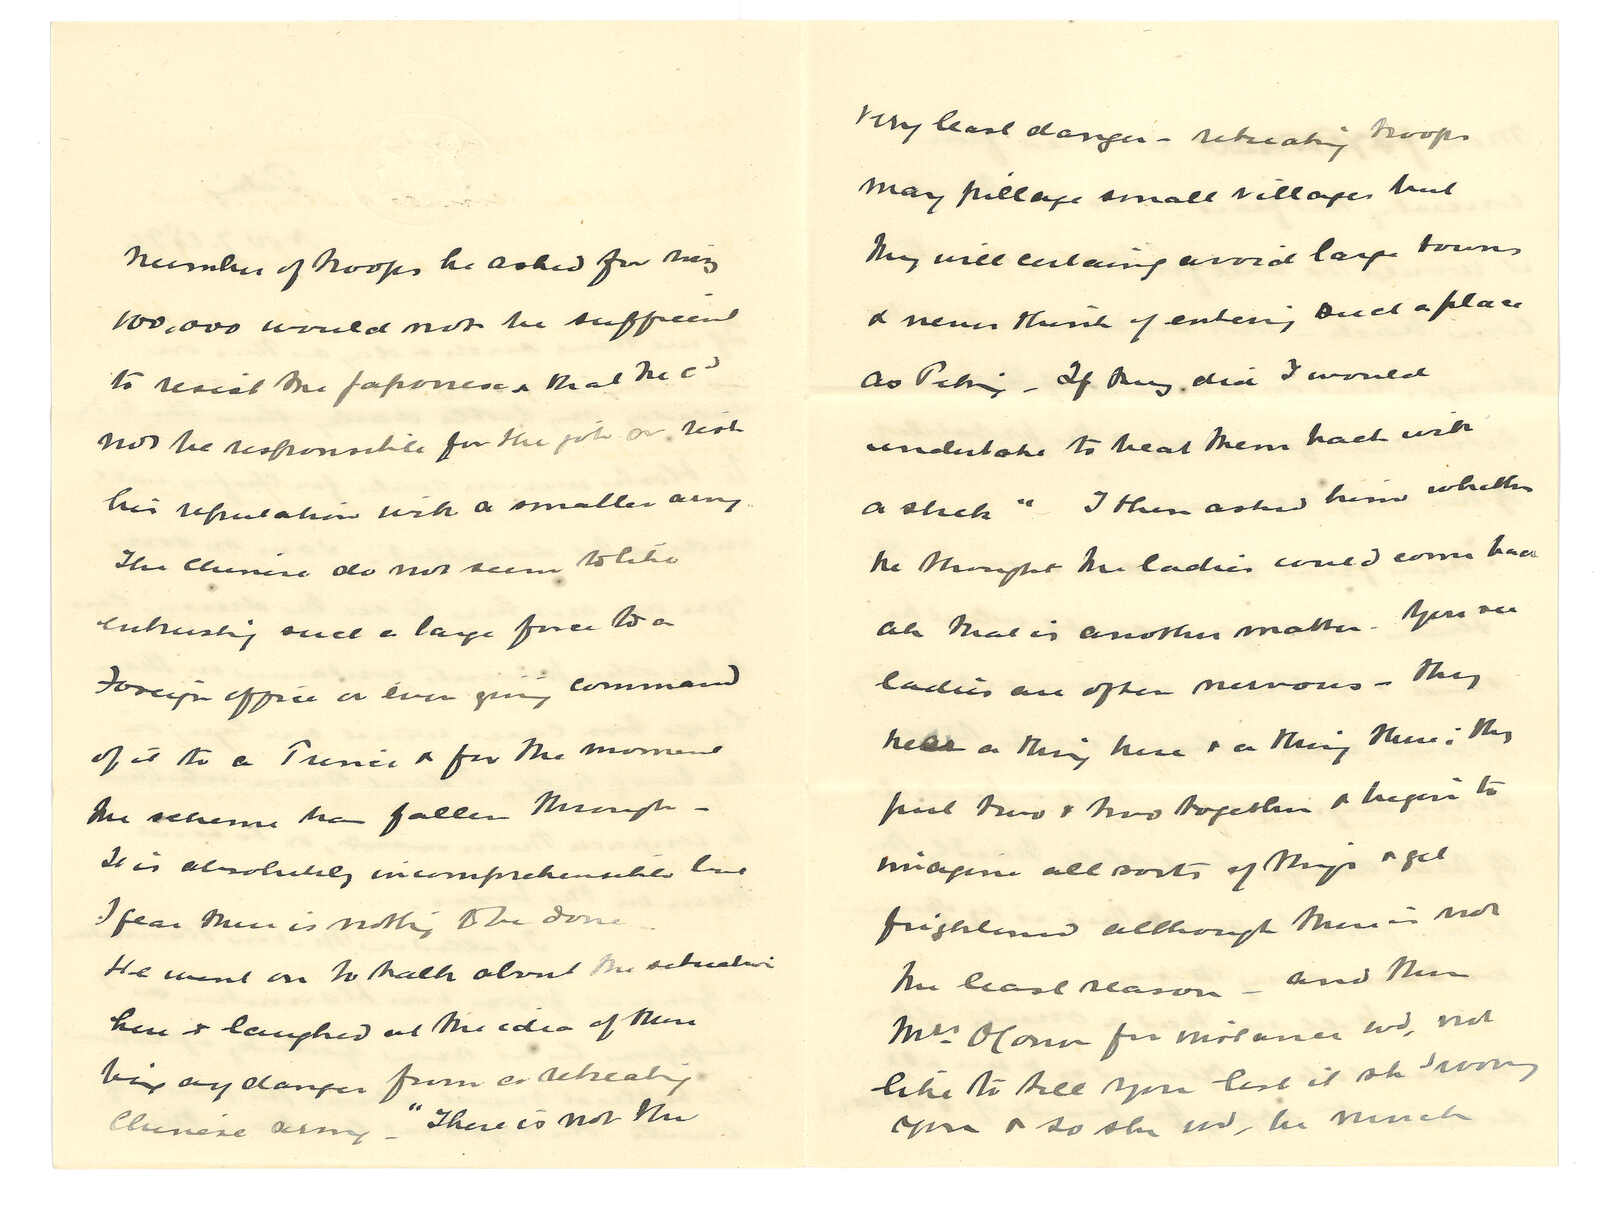 number of troops he asked for viz
100,000 would not be sufficient
to resist the Japanese & that he cd
not be responsible for the job or risk
his reputation with a smaller army
The Chinese do not seem to like
entrusting such a large force to a
Foreign officer or even giving command
of it to a Prince & for the moment
the scheme has fallen through –
It is absolutely incomprehensible but
I fear there is nothing to be done
He went on to talk about the situation
here & laughed at the idea of there
being any danger from a retreating
Chinese army – "There is not the
very least danger – retreating troops
may pillage small villages but
they will certainly avoid large towns
& never think of entering such a place
as Peking – If they did I would
undertake to beat them back with
a stick" I then asked him whether
he thought the ladies could come back
ah that is another matter – You see
ladies are often nervous – they
hear a thing here & a thing there; they
put two & two together & begin to
imagine all sorts of things & get
frightened although there is not
the least reason – and then
Mrs. O'Conor for instance wd, not
like to tell you lest it shd worry
you & so she wd, be much